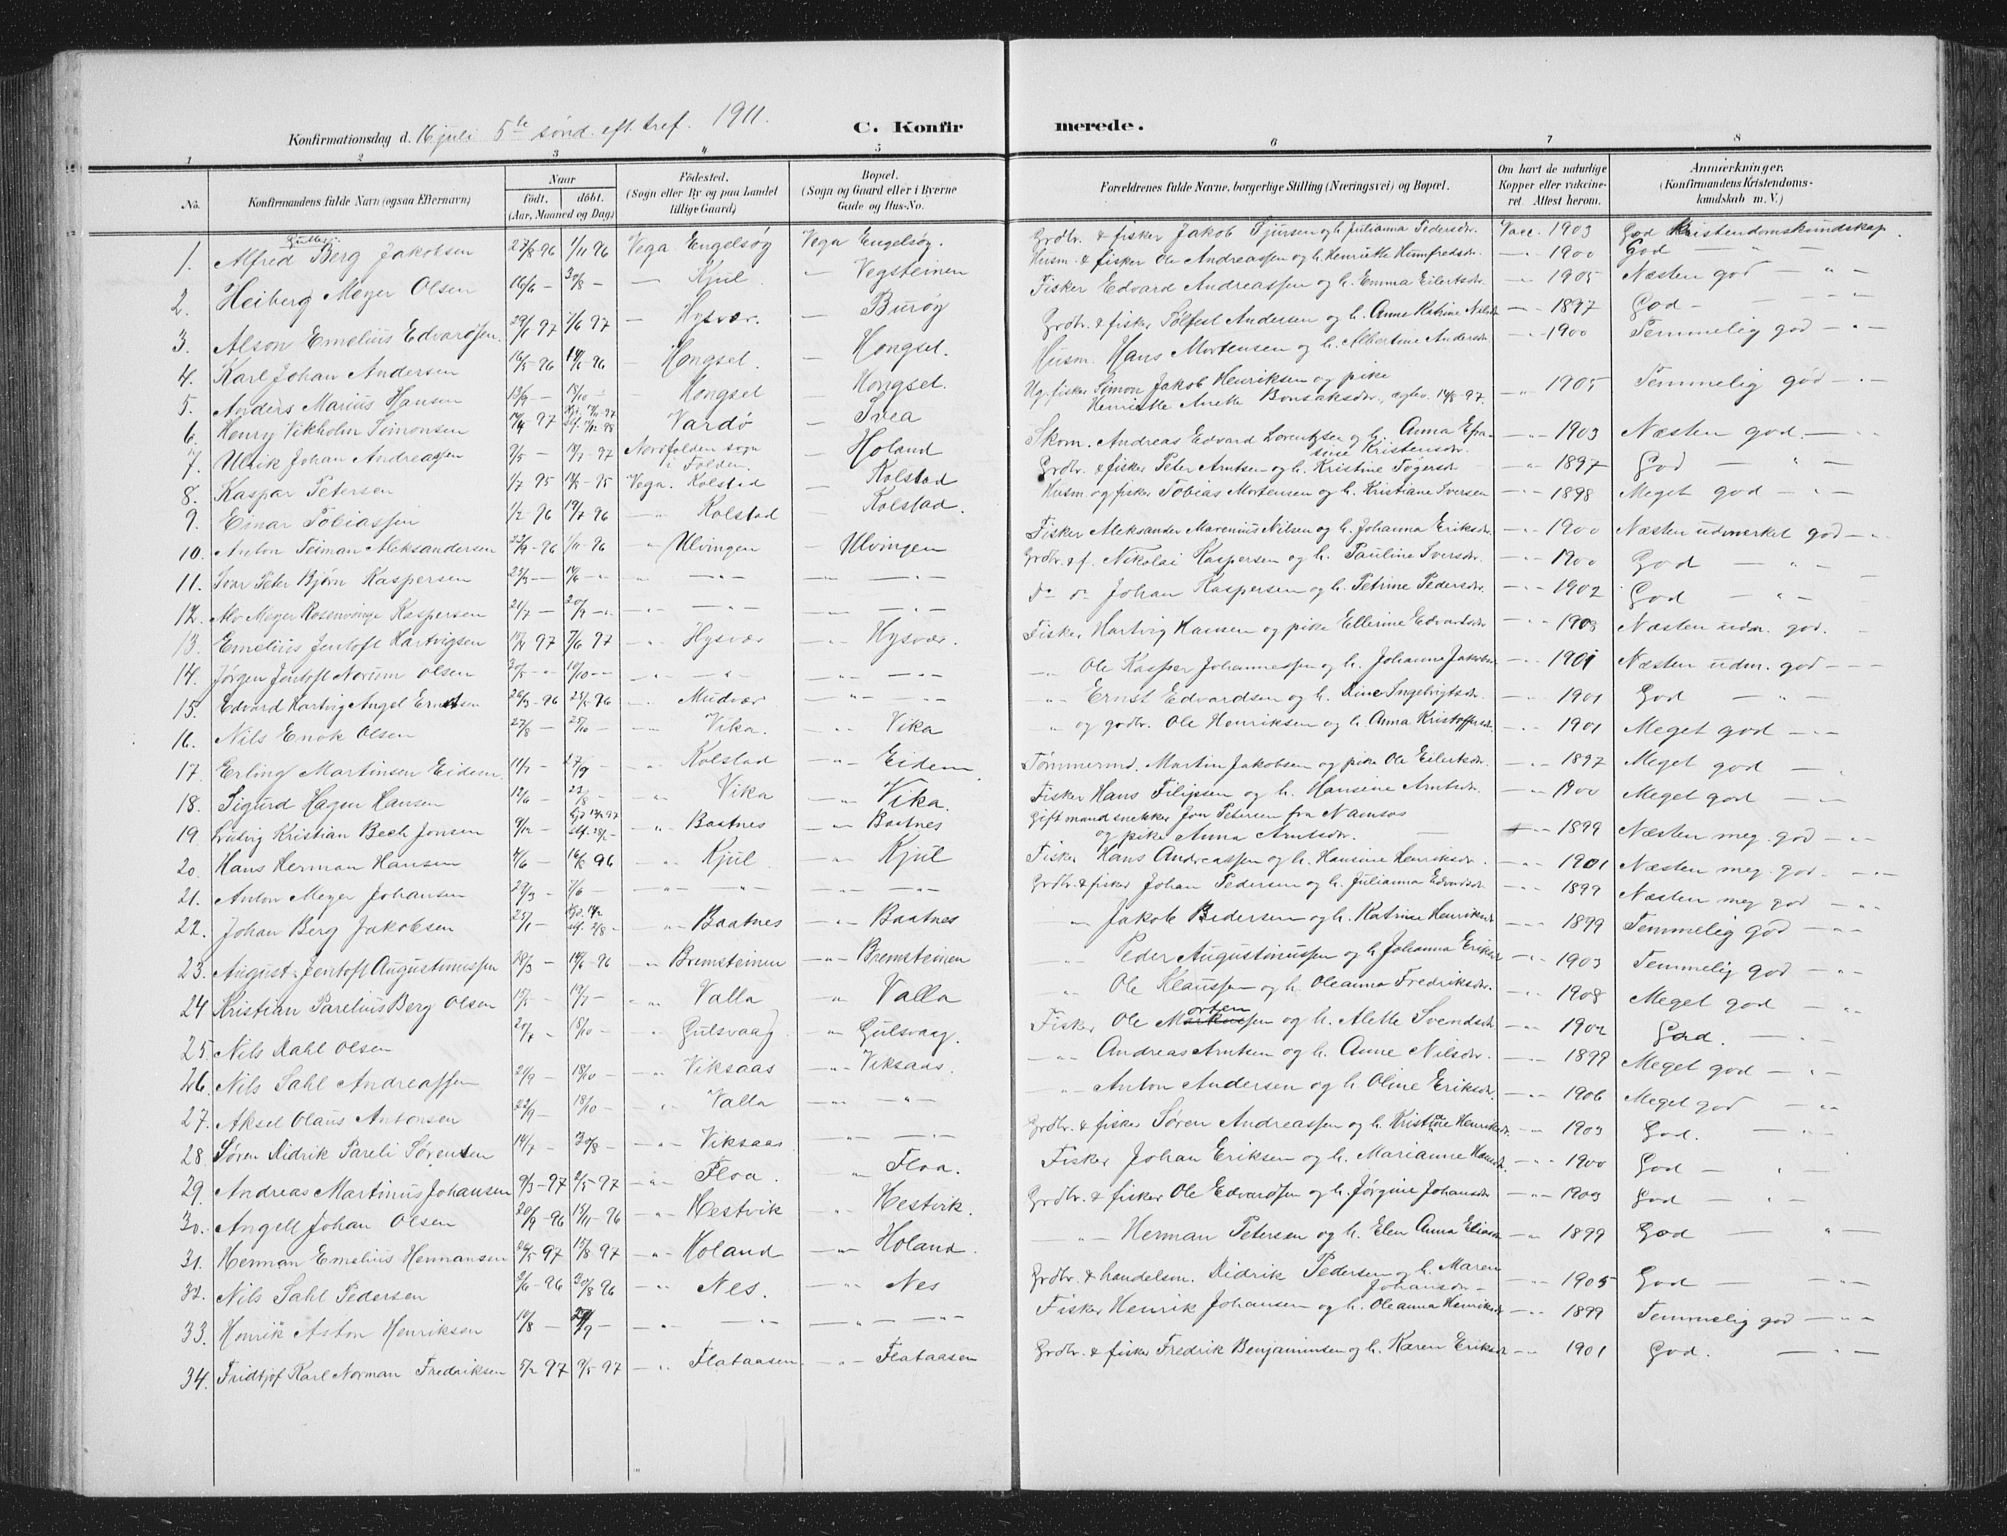 Konfirmationsdag d. 16 juli 5te sønd. eft. tref. 1911. C. Konfirmerede.
1 2 3 4 5 6 7 8
No. Konfirmandens fulde Navn (ogsaa Efternavn) Naar født. døbt. (Aar, Maaned og Dag) Fødested. (Sogn eller By og paa Landet tillige Gaard) Bopæl. (Sogn og Gaard eller i Byerne Gade og Hus-No. Forældrenes fulde Navne, borgerlige Stilling (Næringsvei) og Bopæl. Om havt de naturlige Kopper eller vakcineret. Attest herom. Anmærkninger. (Konfirmandens Kristendomskundskab m. V.)
Gutter:
1. Alfred Berg Jakobsen 27/8-96 1/11 96 Vega Engelsøy Vega Engelsøy. Grdbr. & fisker Jakob Sjursen og h. Julianna Pedersdr. Vacc. 1903 God Kristendomskundskap.
2. Heiberg Meyer Olsen 16/6 — 30/8 — — Kjul — Vegsteinen Husm. & fisker Ole Andreassen og h. Henriette Humfredsdr. —"— 1900 God — " —
3. Alson Emelius Edvardsen 29/1 97 7/6 97 — Hysvær. — Burøy Fisker Edvard Andreassen og h. Emma Eilertsdr. —"— 1905 Næsten god — " —
4. Karl Johan Andersen 16/5-96 96 — Hongset. — Hongset. Grdbr. & fisker Tolfest Andersen og h. Anne Katrine Nilsdr —"— 1897 God — — " —
5. Anders Marius Hansen 13/9 — 18/10 — — Hongset — Hongset. Husm. Hans Mortensen og h. Albertine Andersdr —"— 1900 Temmelig god — " —
6. Henry Vikholm Simonsen 97 Vardø — Svea Ug. fisker Simon Jakob Henriksen og pike Henriette Anette Bonsaksdr, ægtev. 14/8-97. —"— 1905 Temmelig god — " —
7. Ulrik Johan Andreassen 9/5 — 97 Nordfolden sogn i Folden. — Holand Skom. Andreas Edvard Lorentzsen og h. Anna Efrasine Kristensdr. —"— 1903 Næsten god. — " —
8. Kaspar Petersen 1/7 95 95 Vega. Kolstad — Kolstad Grdbr. & fisker Peter Arntsen og h. Kristine Togersdr —"— 1897 God — " —
9. Einar Tobiassen 1/2 96 19/7 96 — " Kolstad — Kolstad. Husm og fisker Tobias Mortensen og h. Kristiane Iversen —"— 1898 Meget god — " —
10. Anton Teiman Aleksandersen 22/9-96 1/11-96 — " Ulvingen — Ulvingen Fisker Aleksander Marenius Nilsen og h. Johanna Eriksdr. —"— 1900 Næsten udmerket god — " —
11. Ivar Peter Bjørn Kaspersen 23/3 — — " — " — — " — " — Grdbr. & f. Nikolai Kaspersen og h. Pauline Iversdr. —"— 1900 God — " —
12. Alv Meyer Rosenvinge Kaspersen 21/7 — 20/9 — — " — " — — " — " — do do Johan Kaspersen og h. Petrine Pedersdr. —"— 1902 God — " —
13. Emelius Jentoft Hartvigsen 97 7/6 97 — " Hysvær — " Hysvær. Fisker Hartvig Hansen og pike Ellerine Edvardsdr —"— 1908 Næsten udm. god. —
14. Jørgen Jentoft Norum Olsen 30/5 — 10/10 — — " — " — — " — " — — " — Ole Kasper Johannessen og h. Johanne Jakobsdr —"— 1901 Næsten udm. god — " —
15. Edvard Hartvig Angel Ernstsen 26/3-96 96 — " Mudvær — " — " — — " — Ernst Edvardsen og h. Dine Ingebrigtsdr. —"— 1901 God — " —
16. Nils Enok Olsen 27/8 — 25/10 — — " Vika. — " Vika — " og grdbr. Ole Henriksen og h. Anna Kristoffersdr —"— 1901 Meget god — " —
17. Erling Martinsen Eidem 11/7 — 27/9 — " Kolstad — " Eidem Tømmermd. Martin Jakobsen og pike Ole Eilertsdr. —"— 1897 Meget god — " —
18. Sigurd Hagen Hansen 12/6 — 23/8 — — " Vika — " Vika. Fisker Hans Filipsen og h. Hansine Arntsdr. —"— 1900 Meget god — " —
19. Ludvig Kristian Bech Jonsen 9/12 — — " Baatnes — " Baatnes Gift mand snekker Jon Petersen fra Namsos og pike Anna Arntsdr. — —"— 1899 Næsten meg. god — " —
20. Hans Herman Hansen 4/6 — 16/8 96 — " Kjul — " Kjul Fisker Hans Andreassen og h. Hansine Henriksdr. —"— 1901 Næsten meg. god — " —
21. Anton Meyer Johansen 29/3 — 7/6 — — " — " — — " — " — Grdbr. & fisker Johan Pedersen og h. Julianna Edvardsdr —"— 1899 Næsten meg god — " —
22. Johan Berg Jakobsen 23/1 — — " Baatnes — " Baatnes — " Jakob Pedersen og h. Katrine Henriksdr —"— 1899 Temmelig god — " —
23. August Jentoft Augustinussen 96 — " Bremsteinen — " Bremsteinen — " — Peder Augustinussen og h. Johanna Eriksdr —"— 1903 Temmelig god — " —
24 Kristian Parelius Berg Olsen 15/5 — 19/7 — — " Valla — " Valla — " Ole Klaussen og h. Oleanna Fredriksdr. —"— 1908 Meget god — "
25. Nils Dahl Olsen 27/7 — 18/10 — — " Gulsvaag — " Gulsvaag. Fisker Ole Mortensen og h. Alette Svendsdr —"— 1902 God. — " —
26. Nils Sahl Andreassen 21/9 — 18/10 — — " Viksaas — " Viksaas. — " — Andreas Arntsen og h. Anne Nilsdr. —"— 1899 Meget god — " —
27. Aksel Olaus Antonsen 22/9 — 18/10 — — " Valla — " — " — — " — Anton Andersen og h. Oline Eriksdr. —"— 1906 Meget god — "
28. Søren Didrik Pareli Sørensen 14/7 — 30/8 — — " Viksaas — " — " — Grdbr. & fisker Søren Andreassen og h. Kristiane Henriksdr. —"— 1903 God. — " —
29. Andreas Martinus Johansen 9/3-97 2/5-97 — " Floa. — " Floa. Fisker Johan Eriksen og h. Marianne Hansdr —"— 1900 God — " —
30. Angell Johan Olsen 20/9-96 15/11-96 — " Hestvik — " Hestvik. Grdbr. & fisker Ole Edvardsen og h. Jørgine Johansdr —"— 1903 God — " —
31. Herman Emelius Hermansen 97 15/8 97 — " Holand — " Holand. — " — Herman Petersen og h. Elen Anna Eliasdr —"— 1899 God — " —
32. Nils Sahl Pedersen 2/6-96 30/8 96 — " Nes. — " Nes Grdbr. & handelsm. Didrik Pedersen og h. Maren Johansdr —"— 1905 God — " —
33. Henrik Aston Henriksen 10/8 — — — " — " — — " — " — Fisker Henrik Johansen og h. Oleanna Henriksdr —"— 1899 Temmelig god — " —
34. Fridtjof Karl Norman Fredriksen 5/2 97 9/5-97 — " Flataasen — " Flataasen Grdbr. & fisker Fredrik Benjaminsen og h. Karen Eriksdr —"— 1901 God. — " —